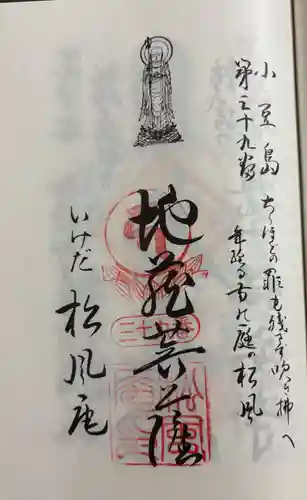 小豆島
第三十九番
ちりほどの罪も残さず吹き拂へ
年経る寺の庭の松風
地蔵菩薩
三十九番
いけだ 松風庵